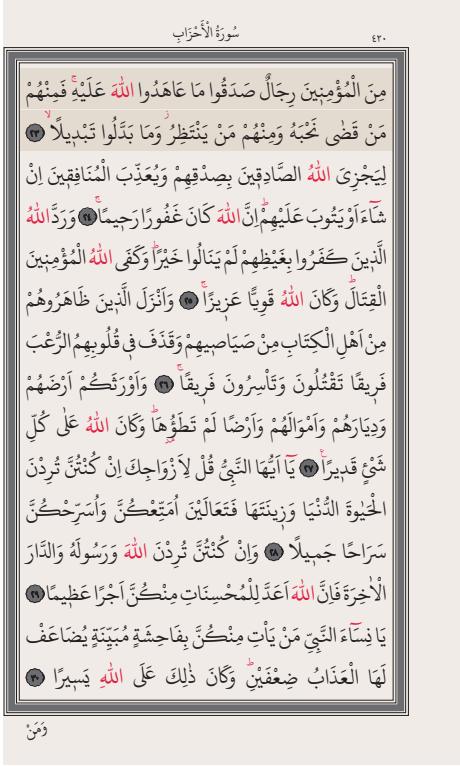 سُورَةُ الْأَحْزَابِ
٤٢٠
مِنَ الْمُؤْمِنِينَ رِجَالٌ صَدَقُوا مَا عَاهَدُوا اللّٰهَ عَلَيْهِۚ فَمِنْهُمْ
مَنْ قَضٰى نَحْبَهُ وَمِنْهُمْ مَنْ يَنْتَظِرُۘ وَمَا بَدَّلُوا تَبْدٖيلًاۙ ﴿٢٣﴾
لِيَجْزِىَ اللّٰهُ الصَّادِقٖينَ بِصِدْقِهِمْ وَيُعَذِّبَ الْمُنَافِقٖينَ اِنْ
شَٓاءَ اَوْ يَتُوبَ عَلَيْهِمْۜ اِنَّ اللّٰهَ كَانَ غَفُورًا رَحٖيمًاۚ ﴿٢٤﴾ وَرَدَّ اللّٰهُ
الَّذٖينَ كَفَرُوا بِغَيْظِهِمْ لَمْ يَنَالُوا خَيْرًاۜ وَكَفَى اللّٰهُ الْمُؤْمِنٖينَ
الْقِتَالَۜ وَكَانَ اللّٰهُ قَوِيًّا عَزٖيزًاۚ ﴿٢٥﴾ وَاَنْزَلَ الَّذٖينَ ظَاهَرُوهُمْ
مِنْ اَهْلِ الْكِتَابِ مِنْ صَيَاصٖيهِمْ وَقَذَفَ فٖى قُلُوبِهِمُ الرُّعْبَ
فَرٖيقًا تَقْتُلُونَ وَتَأْسِرُونَ فَرٖيقًاۚ ﴿٢٦﴾ وَاَوْرَثَكُمْ اَرْضَهُمْ
وَدِيَارَهُمْ وَاَمْوَالَهُمْ وَاَرْضًا لَمْ تَطَؤُ۫هَاۜ وَكَانَ اللّٰهُ عَلٰى كُلِّ
شَىْءٍ قَدٖيرًاۚ ﴿٢٧﴾ يَٓا اَيُّهَا النَّبِىُّ قُلْ لِاَزْوَاجِكَ اِنْ كُنْتُنَّ تُرِدْنَ
الْحَيٰوةَ الدُّنْيَا وَزٖينَتَهَا فَتَعَالَيْنَ اُمَتِّعْكُنَّ وَاُسَرِّحْكُنَّ
سَرَاحًا جَمٖيلًا ﴿٢٨﴾ وَاِنْ كُنْتُنَّ تُرِدْنَ اللّٰهَ وَرَسُولَهُ وَالدَّارَ
الْاٰخِرَةَ فَاِنَّ اللّٰهَ اَعَدَّ لِلْمُحْسِنَاتِ مِنْكُنَّ اَجْرًا عَظٖيمًا ﴿٢٩﴾
يَا نِسَٓاءَ النَّبِىِّ مَنْ يَأْتِ مِنْكُنَّ بِفَاحِشَةٍ مُبَيِّنَةٍ يُضَاعَفْ
لَهَا الْعَذَابُ ضِعْفَيْنِۜ وَكَانَ ذٰلِكَ عَلَى اللّٰهِ يَسٖيرًا ﴿٣٠﴾
وَمَنْ